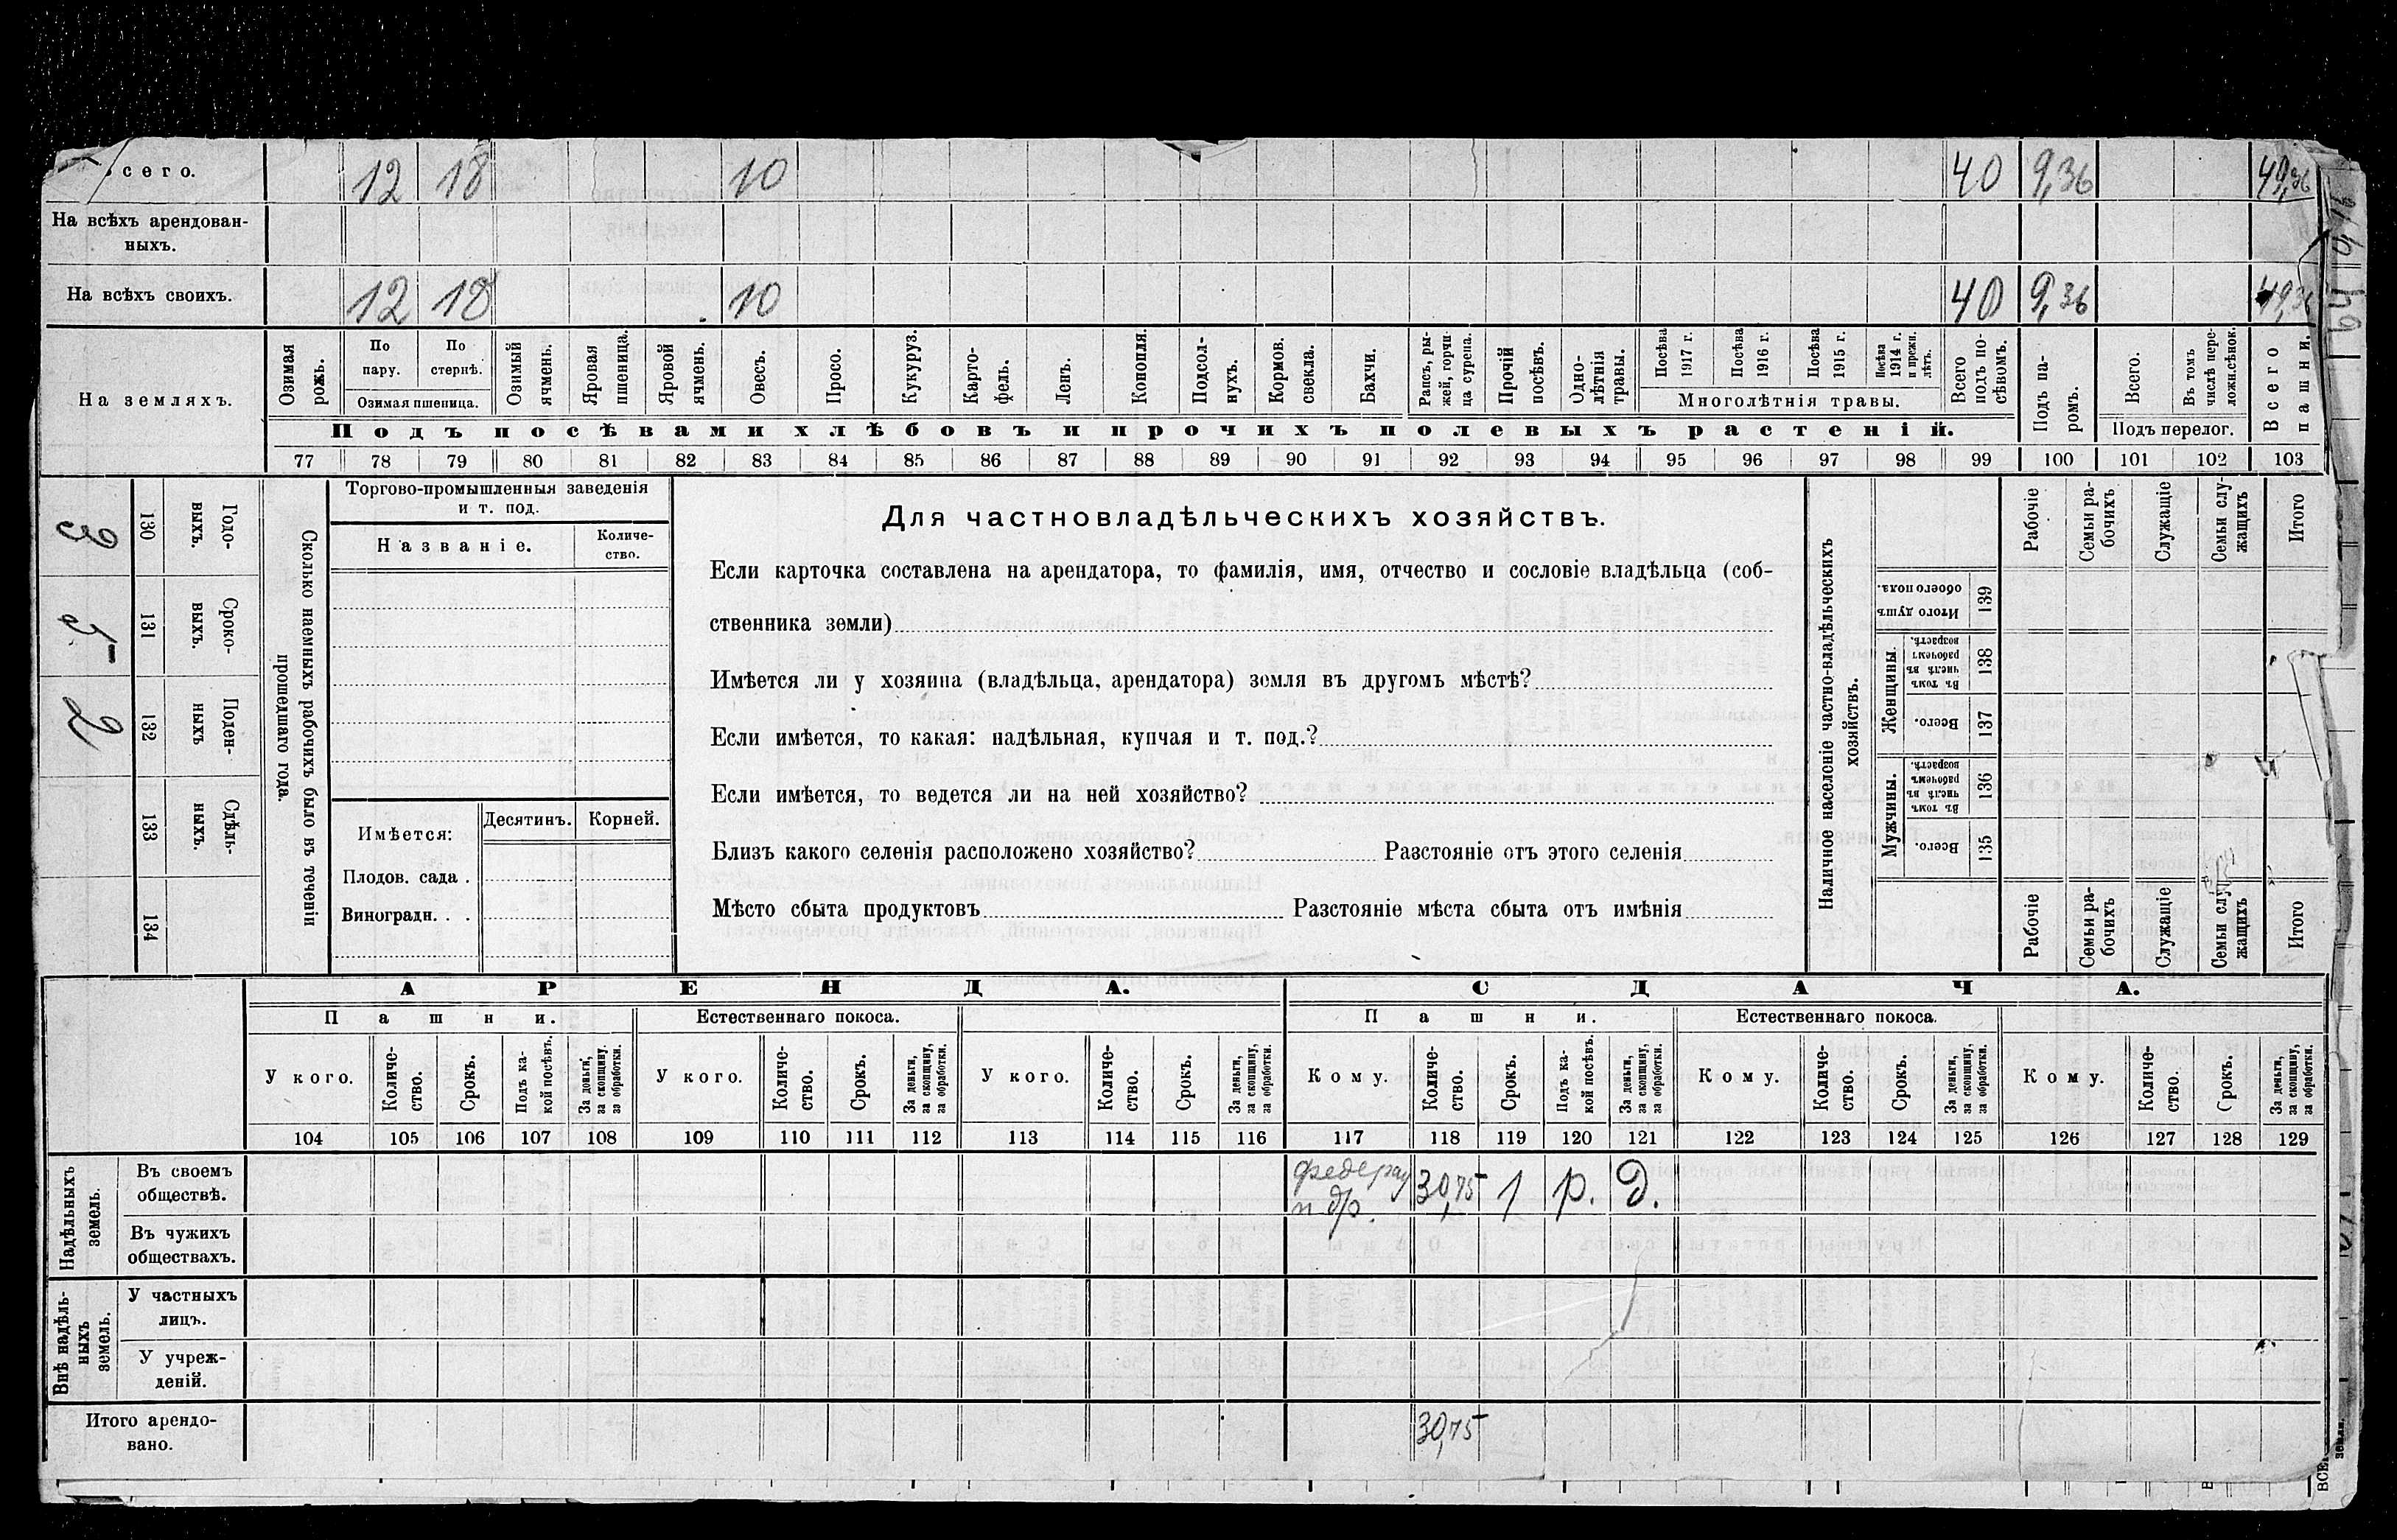 сего. 12 18 10 40 9,36 49,36
На всѣхъ арендован-
ныхъ.
На всѣхъ своихъ. 12 18 10 40 9,36 49,36
На земляхъ.
Озимая рожь.
По пару.
По стернѣ.
Озимая пшеница.
Озимый ячмень.
Яровая пшеница.
Яровой ячмень.
Овесъ.
Просо.
Кукуруз.
Карто-
фель.
Ленъ.
Конопля.
Подсол-
нухъ.
Кормов.
свекла.
Бахчи.
Рапсъ, ры-
жей, горчи-
ца сурепа.
Прочій
посѣвъ.
Одно-
лѣтнія
травы.
Посѣва
1917 г.
Посѣва
1916 г.
Посѣва
1915 г.
Посѣва
1914 г.
и прежн.
лѣтъ.
Многолѣтнія травы.
Всего
подъ по-
сѣвомъ.
Подъ па-
ромъ.
Всего.
Въ томъ
числѣ пере-
ложн.сѣнок.
Подъ перелог.
Всего
пашни.
Подъ посѣвами хлѣбовъ и прочихъ полевыхъ растеній.
77 78 79 80 81 82 83 84 85 86 87 88 89 90 91 92 93 94 95 96 97 98 99 100 101 102 103
3 130 Годо-
выхъ.
5 131 Сроко-
выхъ.
2 132 Поден-
ныхъ
133 Сдѣль-
ныхъ.
134
Сколько наемныхъ рабочихъ было въ теченіи
прошедшаго года.
Торгово-промышленныя заведенія
и т. под.
Названіе.
Количе-
ство.
Имѣется:
Десятинъ. Корней.
Плодов. сада .
Виноградн. . .
Для частновладѣльческихъ хозяйствъ.
Если карточка составлена на арендатора, то фамилія, имя, отчество и сословіе владѣльца (соб-
ственника земли)
Имѣется ли у хозяина (владѣльца, арендатора) земля въ другомъ мѣстѣ?
Если имѣется, то какая: надѣльная, купчая и т. под.?
Если имѣется, то ведется ли на ней хозяйство?
Близъ какого селенія расположено хозяйство? Разстояніе отъ этого селенія
Мѣсто сбыта продуктовъ Разстояніе мѣста сбыта отъ имѣнія
Наличное населеніе частно-владѣльческихъ
хозяйствъ.
Рабочіе
Семьи ра-
бочихъ
Служащіе
Семьи слу-
жащихъ
Итого
Итого душъ
обоего пола.
139
Женщины.
Въ томъ
числѣ въ
рабочемъ
возрастѣ.
138
Всего.
137
Мужчины.
Въ томъ
числѣ въ
рабочемъ
возрастѣ.
136
Всего.
135
Рабочіе
Семьи ра-
бочихъ
Служащіе
Семьи слу-
жащихъ
Итого
АРЕНДА. СДАЧА.
Пашни. Естественнаго покоса. Пашни. Естественнаго покоса.
У кого.
Количе-
ство.
Срокъ.
Подъ ка-
кой посѣвъ.
За деньги,
за скопщину,
за обработки.
У кого.
Количе-
ство.
Срокъ.
За деньги,
за скопщину,
за обработки.
У кого.
Количе-
ство.
Срокъ.
За деньги,
за скопщину,
за обработки.
Кому.
Количе-
ство.
Срокъ.
Подъ ка-
кой посѣвъ.
За деньги,
за скопщину,
за обработки.
Кому.
Количе-
ство.
Срокъ.
За деньги,
за скопщину,
за обработки.
Кому.
Количе-
ство.
Срокъ.
За деньги,
за скопщину,
за обработки.
104 105 106 107 108 109 110 111 112 113 114 115 116 117 118 119 120 121 122 123 124 125 126 127 128 129
Надѣльныхъ
земель.
Въ своемъ
обществѣ.
30,75 1 р. Д.
и др.
Въ чужихъ
обществахъ.
Внѣ надѣль-
ныхъ
земель.
У частныхъ
лицъ.
У учреж-
деній.
Итого арендо-
вано.
30,75